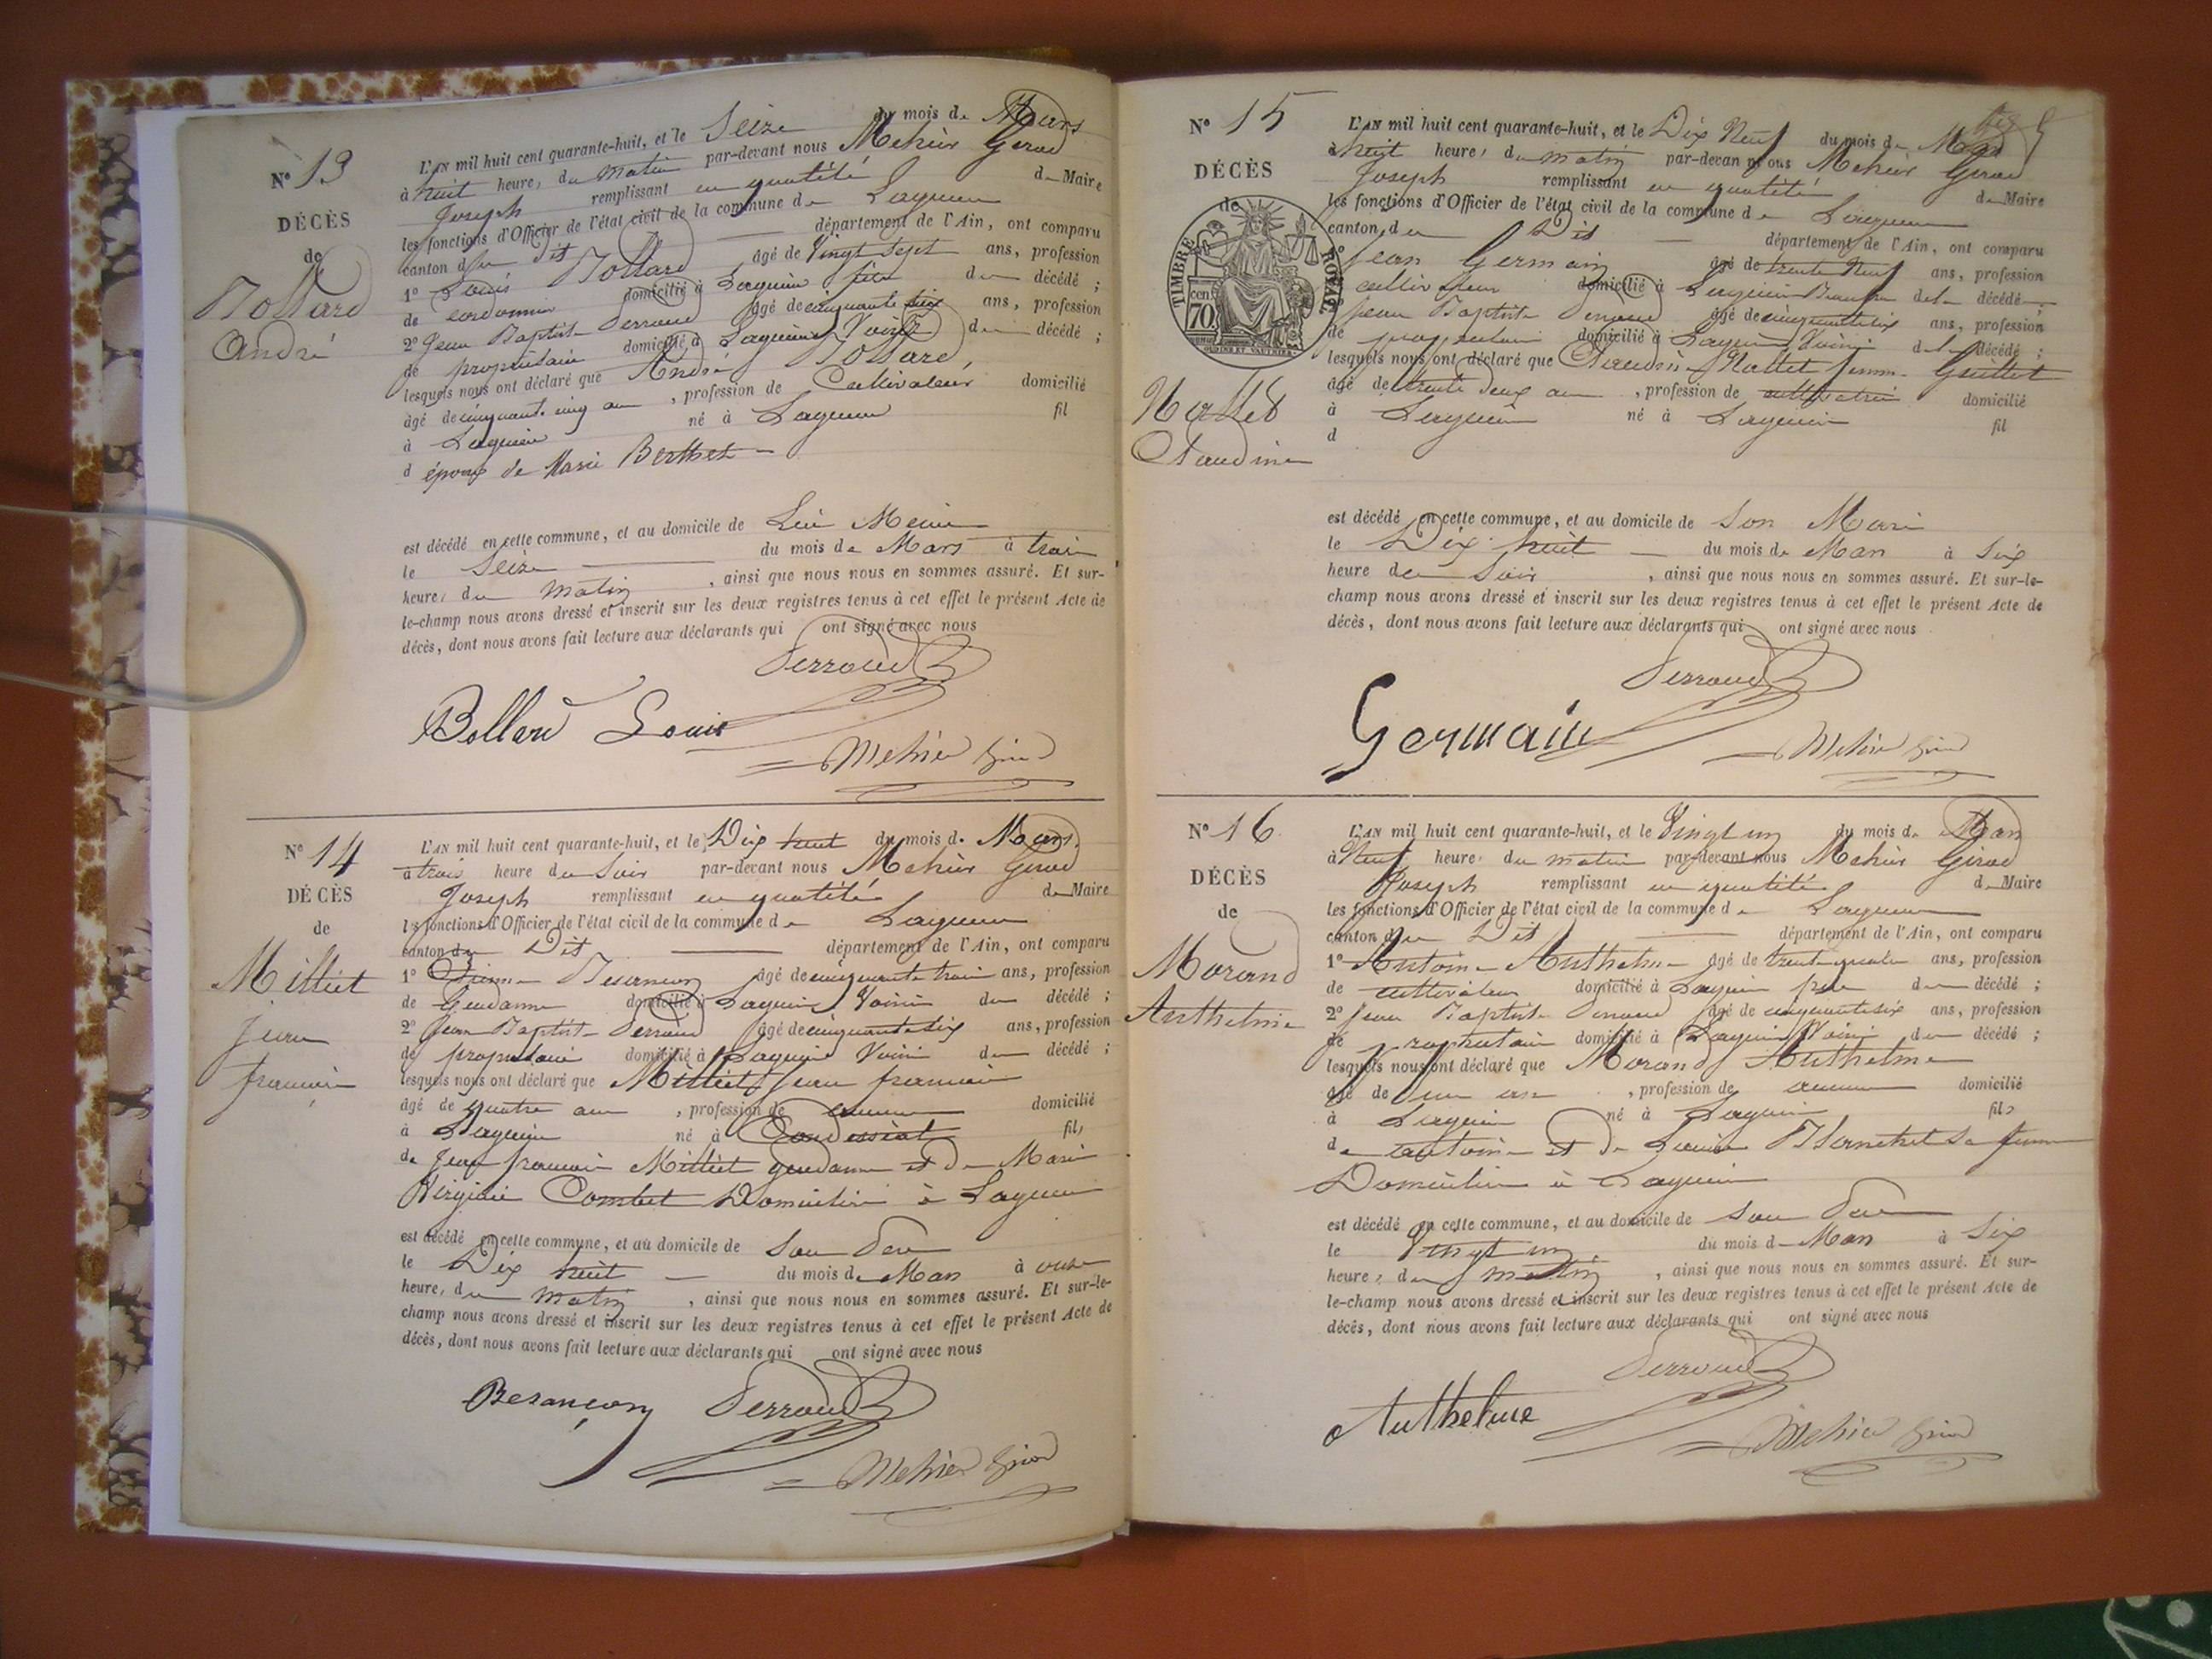 N° 13
DÉCÈS
de
Bollard
André
L'AN mil huit cent quarante-huit, et le Seize du mois de Mars
à huit heures du matin par-devant nous Mehier Girod
Joseph remplissant en qualité de Maire
les fonctions d'Officier de l'état civil de la commune de Lagnieu
canton du dit département de l'Ain, ont comparu
1° Louis Bollard âgé de Vingt Sept ans, profession
de cordonnier domicilié à Lagnieu fils du décédé ;
2° Jean Baptiste Perroud âgé de cinquante six ans, profession
de propriétaire domicilié à Lagnieu Voisin du décédé ;
lesquels nous ont déclaré que André Bollard
âgé de cinquante cinq ans, profession de Cultivateur domicilié
à Lagnieu né à Lagnieu fil
d époux de Marie Berthet
est décédé en cette commune, et au domicile de
le Seize du mois de Mars à trois
heures du matin, ainsi que nous nous en sommes assuré. Et sur-
le-champ nous avons dressé et inscrit sur les deux registres tenus à cet effet le présent Acte de
décès, dont nous avons fait lecture aux déclarants qui ont signé avec nous
Perroud
Bollard Louis
Mehier Girod
N° 14
DÉCÈS
de
Milliet
Jean
francois
L'AN mil huit cent quarante-huit, et le Dix huit du mois de Mars
à trois heure du Soir par-devant nous Mehier Girod
Joseph remplissant en qualité de Maire
les fonctions d'Officier de l'état civil de la commune de Lagnieu
canton du Dit département de l'Ain, ont comparu
1° Besancon âgé de cinquante trois ans, profession
de Gendarme domicilié à Lagnieu Voisin du décédé ;
2° Jean Baptiste Perroud âgé de cinquante six ans, profession
de propriétaire domicilié à Lagnieu Voisin du décédé ;
lesquels nous ont déclaré que Milliet Jean francois
âgé de quatre ans, profession de aucune domicilié
à Lagnieu né à Condessiat fils
de Jean francois Milliet gendarme et de Marie
Virginie Combet Domiciliés à Lagnieu
est décédé en cette commune, et au domicile de Son Père
le Dix huit du mois de Mars à onze
heure, du matin, ainsi que nous nous en sommes assuré. Et sur-le-
champ nous avons dressé et inscrit sur les deux registres tenus à cet effet le présent Acte de
décès, dont nous avons fait lecture aux déclarants qui ont signé avec nous
Besançon Perroud
Mehier Girod
N° 15
DÉCÈS
de
TIMBRE ROYAL
70 cen
Claudine
L'AN mil huit cent quarante-huit, et le Dix Neuf du mois de Mars
à huit heures du matin par-devant nous Mehier Girod
Joseph remplissant en qualité de Maire
les fonctions d'Officier de l'état civil de la commune de Lagnieu
canton du Dit département de l'Ain, ont comparu
1° Jean Germain âgé de trente Neuf ans, profession
de cultivateur domicilié à Lagnieu Beaufrère de la décédé ;
2° Jean Baptiste Perroud âgé de cinquante six ans, profession
de propriétaire domicilié à Lagnieu Voisin de la décédé ;
lesquels nous ont déclaré que Claudine femme
âgé de trente deux ans, profession de cultivatrice domicilié
à Lagnieu né à Lagnieu fil
d
est décédé en cette commune, et au domicile de Son Mari
le Dix huit du mois de Mars à Six
heure du Soir, ainsi que nous nous en sommes assuré. Et sur-le-
champ nous avons dressé et inscrit sur les deux registres tenus à cet effet le présent Acte de
décès, dont nous avons fait lecture aux déclarants qui ont signé avec nous
Perroud
Germain
Mehier Girod
N° 16
DÉCÈS
de
Morand
Anthelme
L'AN mil huit cent quarante-huit, et le Vingt un du mois de Mars
à Neuf heures du matin par-devant nous Mehier Girod
Joseph remplissant en qualité de Maire
les fonctions d'Officier de l'état civil de la commune de Lagnieu
canton du Dit département de l'Ain, ont comparu
1° Antoine Anthelme âgé de trente quatre ans, profession
de cultivateur domicilié à Lagnieu père du décédé ;
2° Jean Baptiste Perroud âgé de cinquante six ans, profession
de propriétaire domicilié à Lagnieu Voisin du décédé ;
lesquels nous ont déclaré que Morand Anthelme
âgé de un an, profession de aucune domicilié
à Lagnieu né à Lagnieu fils
de antoine et de Louise Sa femme
Domiciliés à Lagnieu
est décédé en cette commune, et au domicile de Son Père
le Vingt un du mois de Mars à Six
heures du matin, ainsi que nous nous en sommes assuré. Et sur-
le-champ nous avons dressé et inscrit sur les deux registres tenus à cet effet le présent Acte de
décès, dont nous avons fait lecture aux déclarants qui ont signé avec nous
Perroud
Anthelme
Mehier Girod